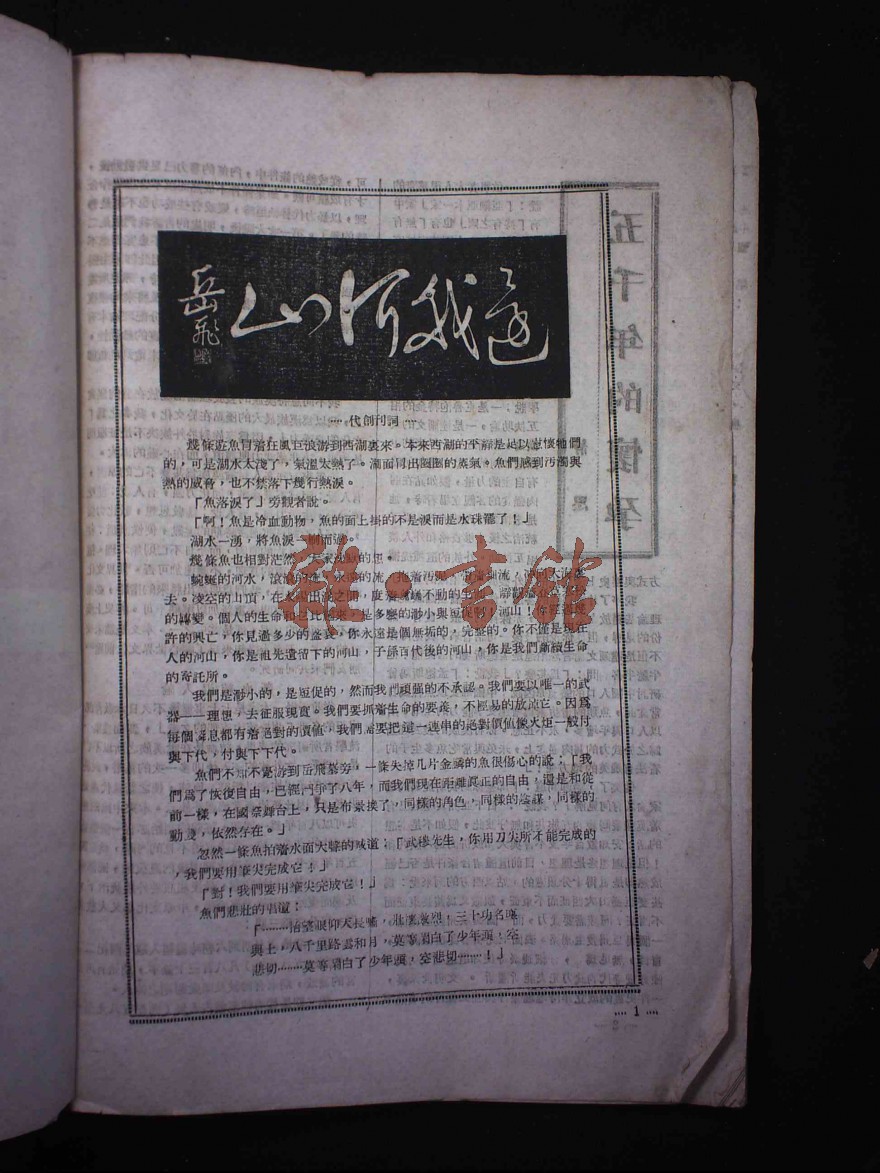 還我河山
岳飛
代創刊詞
幾條遊魚冒着狂風巨浪游到西湖裏來。本來西湖的平靜是足以慰懷牠們
的，可是湖水太淺了，氣溫太熱了。湖面冒出團團的蒸氣。魚們感到污濁與
熱的威脅，也不禁落下幾行熱淚。
「魚落淚了」旁觀者說。
「啊！魚是冷血動物，魚的面上掛的不是淚而是水珠罷了！」
湖水一湧，將魚淚一刷而過。
幾條魚也相對茫然，大家沈默的想。
蜿蜒的河水，滾滾的
去。凌空的山頂，在
的轉變。個人的生命和它比起來，是多麼的渺小與短促啊！河山！你
許的興亡，你見過多少的盛衰，你永遠是個無垢的，完整的。你不僅是現在
人的河山，你是祖先遺留下的河山，子孫百代後的河山，你是我們繼續生命
的寄託所。
我們是渺小的，是短促的，然而我們頑強的不承認。我們要以唯一的武
器——理想，去征服現實。我們要抓着生命的要義，不輕易的放掉它。因為
每個瞬息都有着絕對的價值，我們需要把這一連串的絕對價值像火炬一般付
與下代，付與下下代。
魚們不知不覺游到岳飛墓旁，一條失掉几片金鱗的魚很傷心的說：「我
們為了恢復自由，已經鬥爭了八年，而我們現在距離真正的自由，還是和從
前一樣，在國際舞台上，只是布景換了，同樣的角色，同樣的陰謀，同樣的
動盪，依然存在。」
忽然一條魚拍着水面大聲的喊道：「武穆先生，你用刀尖所不能完成的
，我們要用筆尖完成它！」
「對！我們要用筆尖完成它！」
魚們悲壯的唱道：
「………怡望眼仰天長嘯，壯懷激烈！三十功名塵
與土，八千里路雲和月，莫等閒白了少年頭，空
悲切………莫等閒白了少年頭，空悲切………！」
1
雜·書館
五千年的懷孕